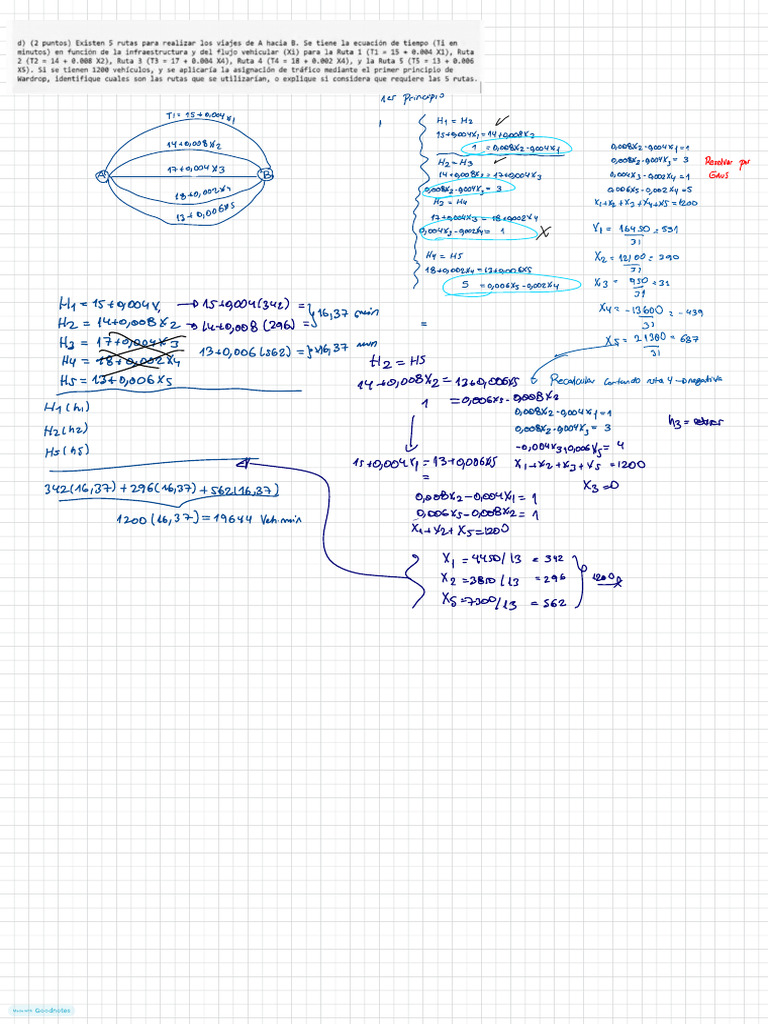 d) (2 puntos) Existen 5 rutas para realizar los viajes de A hacia B. Se tiene la ecuación de tiempo (Ti en
minutos) en función de la infraestructura y del flujo vehicular (Xi) para la Ruta 1 (T1 = 15 + 0.004 X1), Ruta
2 (T2 = 14 + 0.008 X2), Ruta 3 (T3 = 17 + 0.004 X4), Ruta 4 (T4 = 18 + 0.002 X4), y la Ruta 5 (T5 = 13 + 0.006
X5). Si se tienen 1200 vehículos, y se aplicaría la asignación de tráfico mediante el primer principio de
Wardrop, identifique cuales son las rutas que se utilizarían, o explique si considera que requiere las 5 rutas.
1er Principio
T1 = 15+0,004x1
14+0,008x2
17+0,004x3
18+0,002x4
13+0,006x5
A
B
H1 = H2 ✓
15+0,004x1 = 14+0,008x2
1 = 0,008x2-0,004x1
H2 = H3 ✓
14+0,008x2 = 17+0,004x3
0,008x2-0,004x3 = 3
H2 = H4
17+0,004x3 = 18+0,002x4
0,004x3-0,002x4 = 1 X
H4 = H5
18+0,002x4 = 13+0,006x5
5 = 0,006x5-0,002x4
0,008x2-0,004x1 = 1
0,008x2-0,004x3 = 3
0,004x3-0,002x4 = 1
0,006x5-0,002x4 = 5
x1+x2+x3+x4+x5 = 1200
Resolver por
Gaus
X1 = 16450/31 = 531
X2 = 12100/31 = 390
X3 = 950/31 = 31
X4 = -13600/31 = -439
X5 = 21300/31 = 687
H1 = 15+0,004x1 → 15+0,004(342) =
H2 = 14+0,008x2 → 14+0,008(296) = } 16,37 min
H3 = 17+0,004x3
H4 = 18+0,002x4
13+0,006(562) = } 16,37 min
H5 = 13+0,006x5
=
H2 = H5
14+0,008x2 = 13+0,006x5
1 = 0,006x5-0,008x2
Recalcular cortando ruta 4 → negativa
0,008x2-0,004x1 = 1
0,008x2-0,004x3 = 3
-0,004x3+0,006x5 = 4
x1+x2+x3+x5 = 1200
X3 = 0
h3 =
H1(h1)
H2(h2)
H5(h5)
342(16,37)+296(16,37)+562(16,37)
1200(16,37) = 19644 Veh.min
15+0,004x1 = 13+0,006x5
=
0,008x2-0,004x1 = 1
0,006x5-0,008x2 = 1
x1+x2+x5 = 1200
X1 = 4450/13 = 342
X2 = 3850/13 = 296
X5 = 7300/13 = 562
1200
Made with Goodnotes